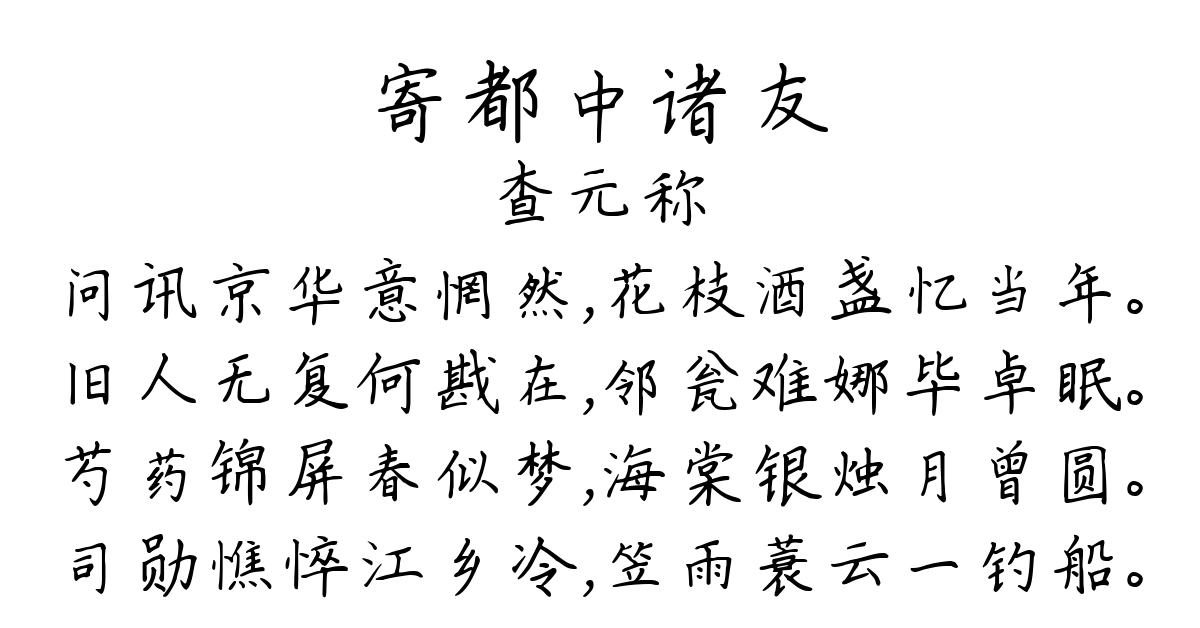 寄都中诸友
查元称
问讯京华意惘然,花枝酒盏忆当年。
旧人无复何戡在,邻瓮难娜毕卓眠。
芍药锦屏春似梦,海棠银烛月曾圆。
司勋憔悴江乡冷,笠雨蓑云一钓船。